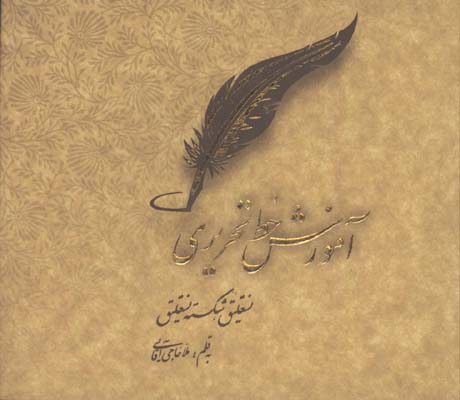 آموزش خط تحریری
نستعلیق، شکسته نستعلیق
به قلم: